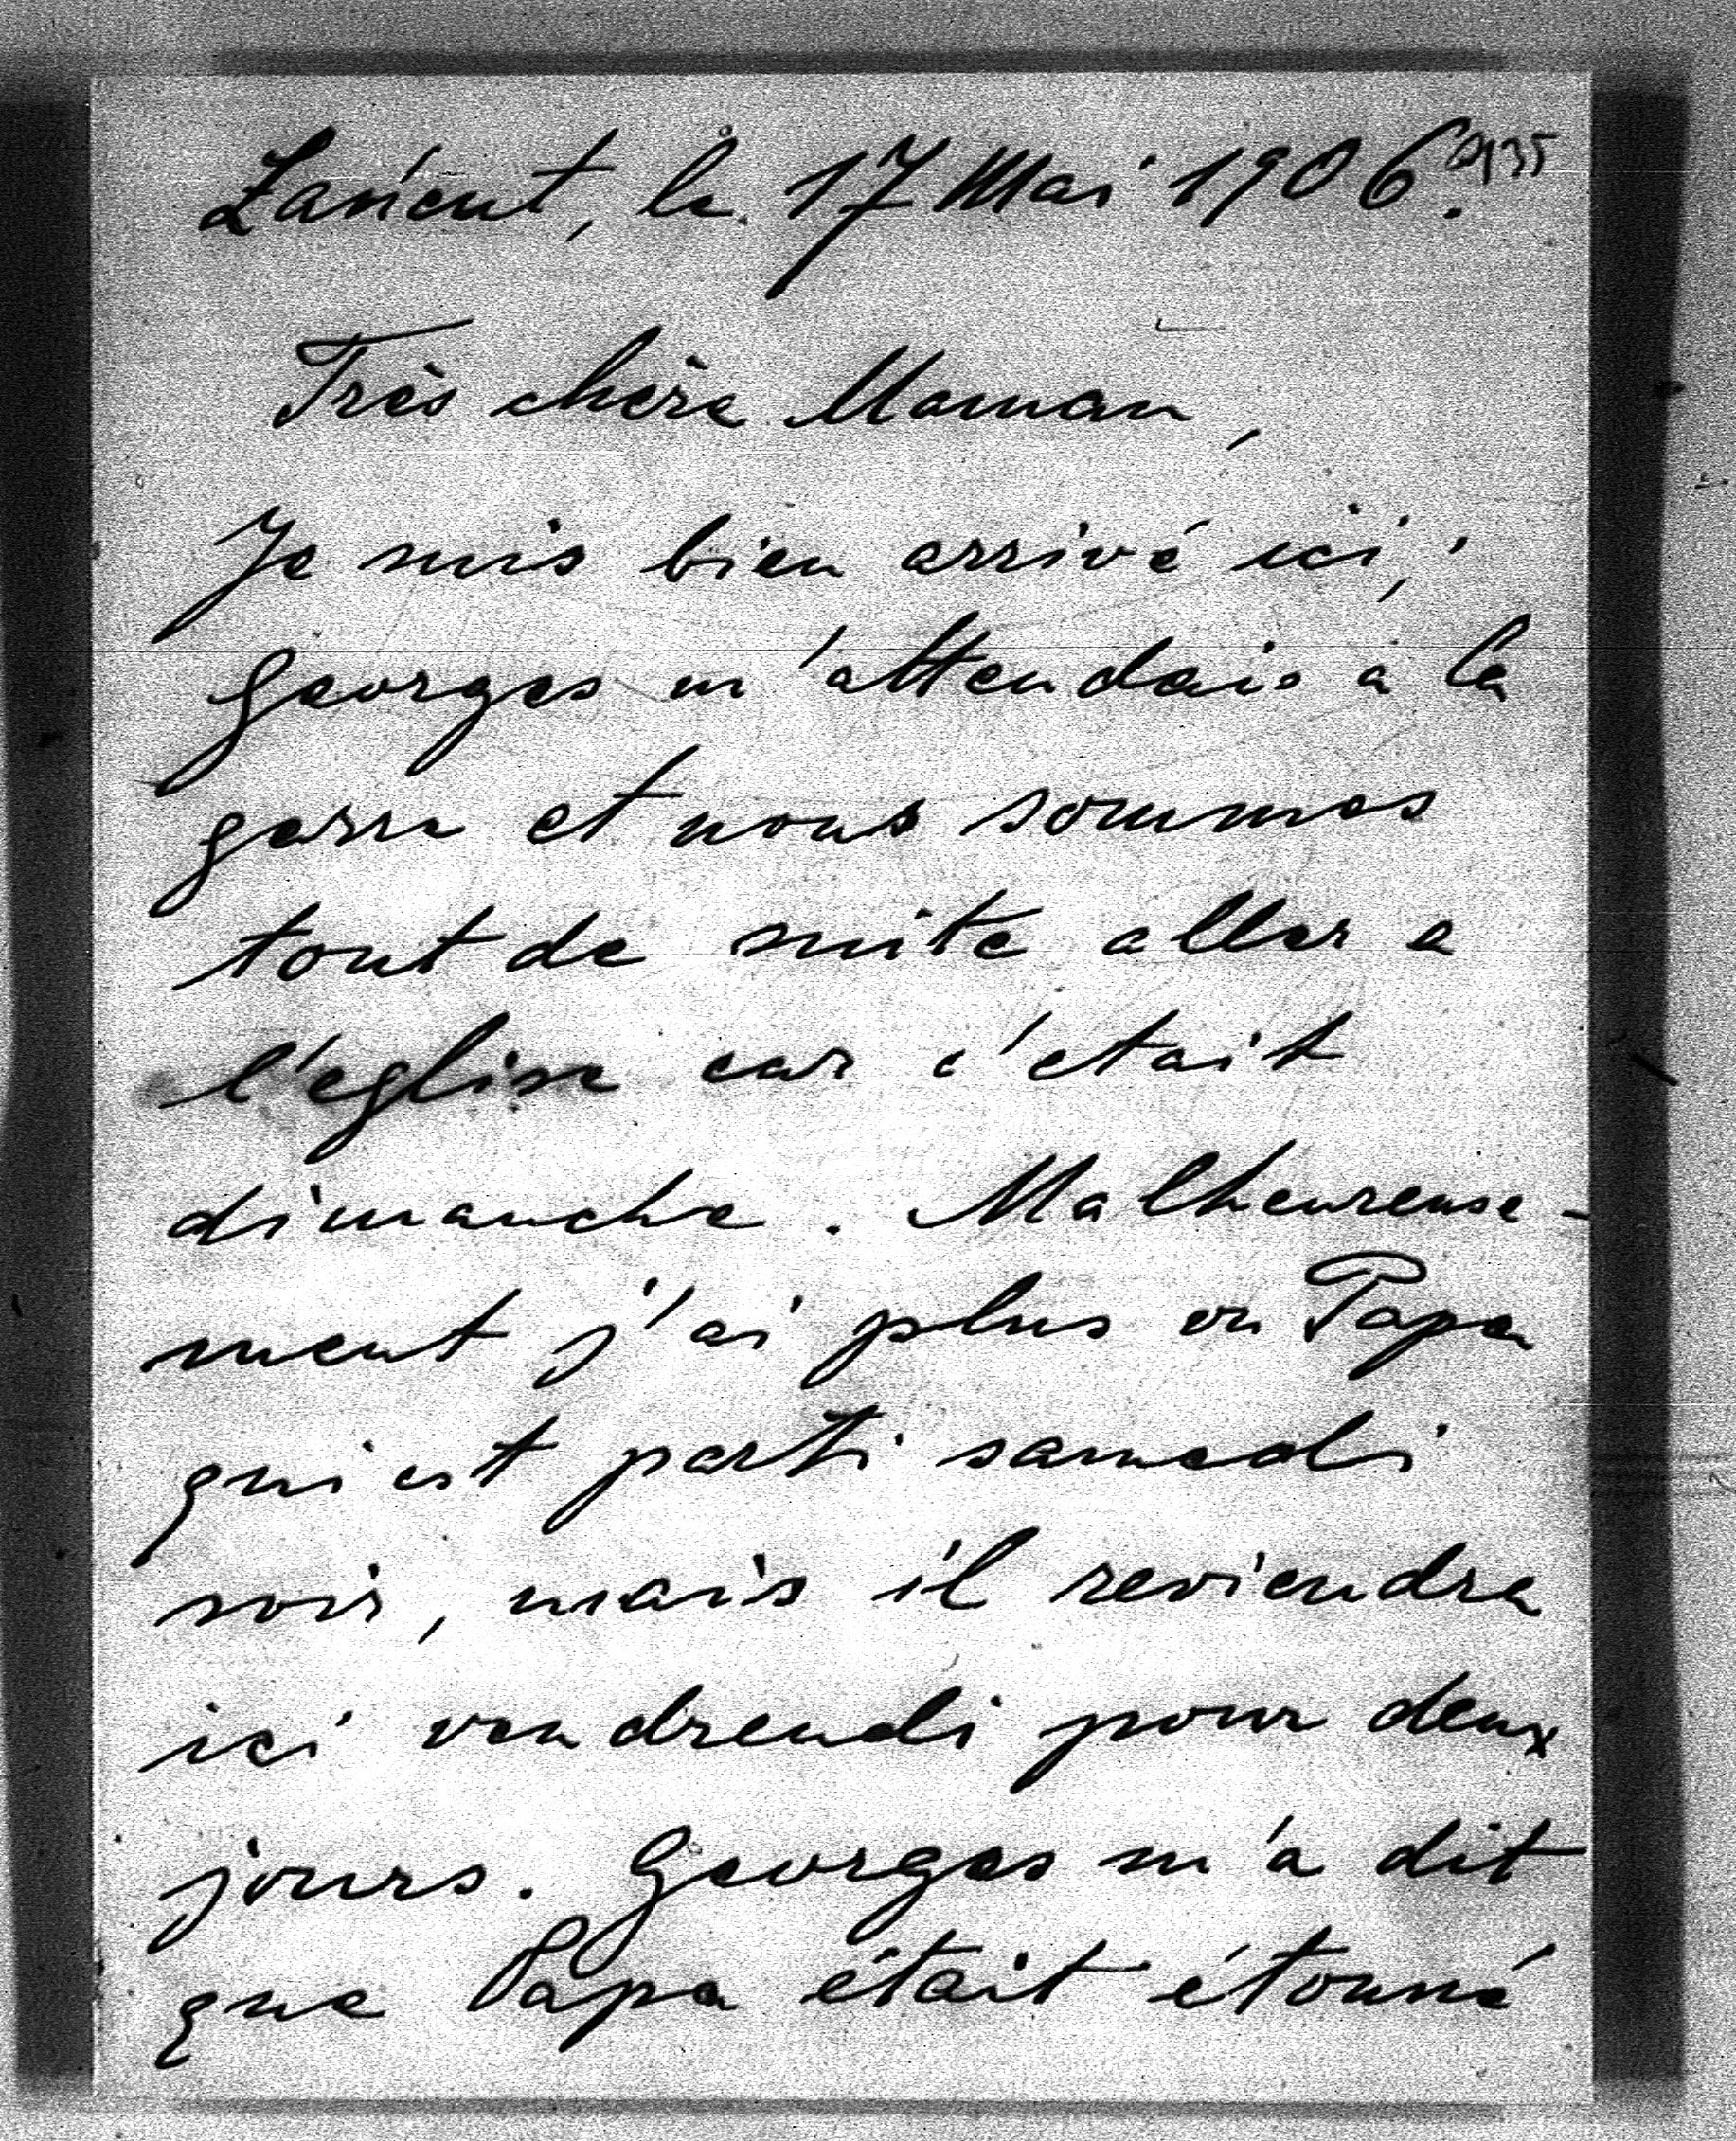 Łańcut, le 17 Mai 1906.
Très chère Maman,
Je suis bien arrivé ici,
Georges m'attendais à la
garre et nous sommes
tout de suite aller a
l'église car c'etait
dimanche. Malheureuse-
ment j'ai plus vu Papa
qui est parti samedi
soir, mais il reviendra
ici vendrendi pour deux
jours. Georges m'a dit
que Papa était étonné